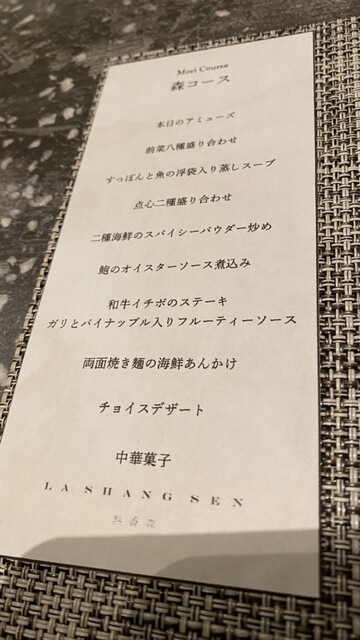 Mori Course
森コース
本日のアミューズ
前菜八種盛り合わせ
すっぽんと魚の浮袋入り蒸しスープ
点心二種盛り合わせ
二種海鮮のスパイシーパウダー炒め
鮑のオイスターソース煮込み
和牛イチボのステーキ
ガリとパイナップル入りフルーティーソース
両面焼き麺の海鮮あんかけ
チョイスデザート
中華菓子
LA SHANG SEN